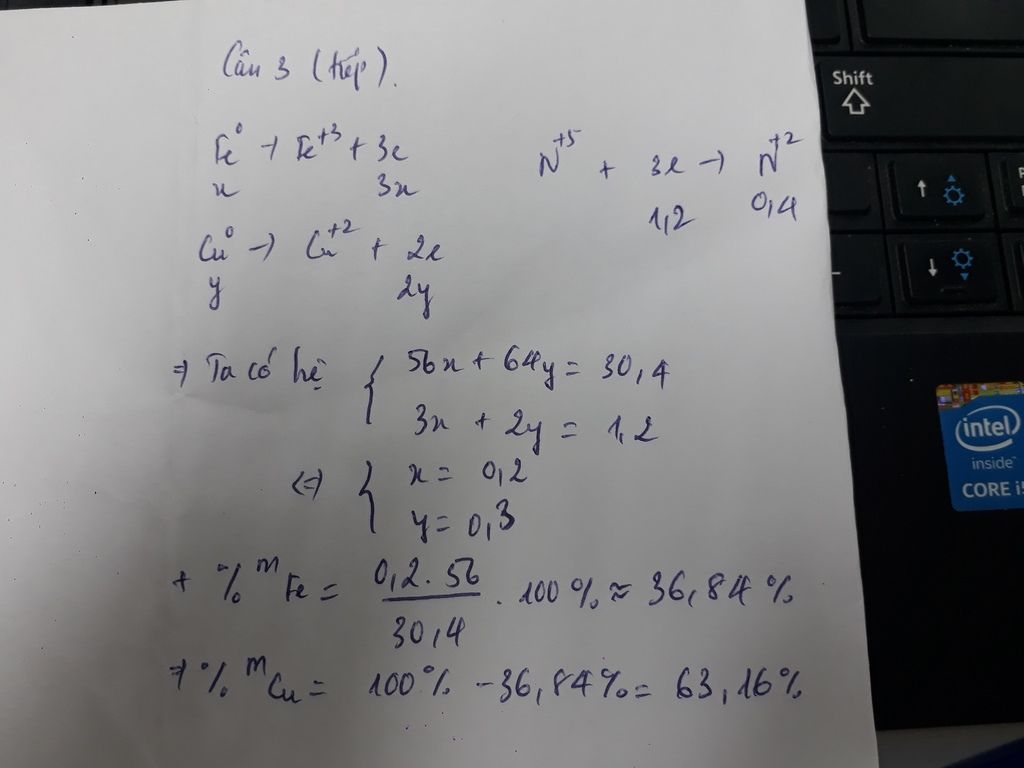 Câu 3 (tiếp).
Fe⁰ → Fe⁺³ + 3e
x 3x
N⁺⁵ + 3e → N⁺²
1,2 0,4
Cu⁰ → Cu⁺² + 2e
y 2y
⇒ Ta có hệ { 56x + 64y = 30,4
3x + 2y = 1,2
⇔ { x = 0,2
y = 0,3
+ % mFe = 0,2 . 56 / 30,4 . 100 % ≈ 36,84 %
⇒ % mCu = 100 % - 36,84 % = 63,16 %
Shift
intel
inside™
CORE i5